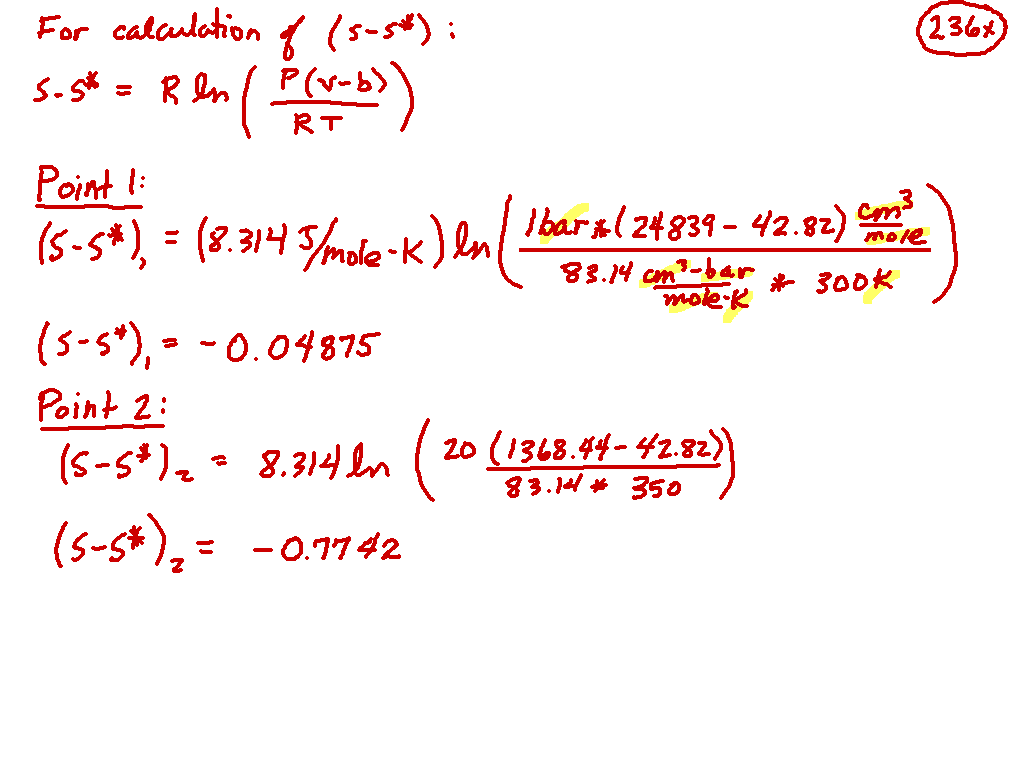 For calculation of (s-s*) : 236x
s-s* = R ln ( P(v-b) / RT )
Point 1:
(s-s*)₁ = (8.314 J/mole-K) ln ( 1bar*(24839 - 42.82) cm³/mole / 83.14 cm³-bar/mole-K * 300K )
(s-s*)₁ = -0.04875
Point 2:
(s-s*)₂ = 8.314 ln ( 20 (1368.44 - 42.82) / 83.14 * 350 )
(s-s*)₂ = -0.7742